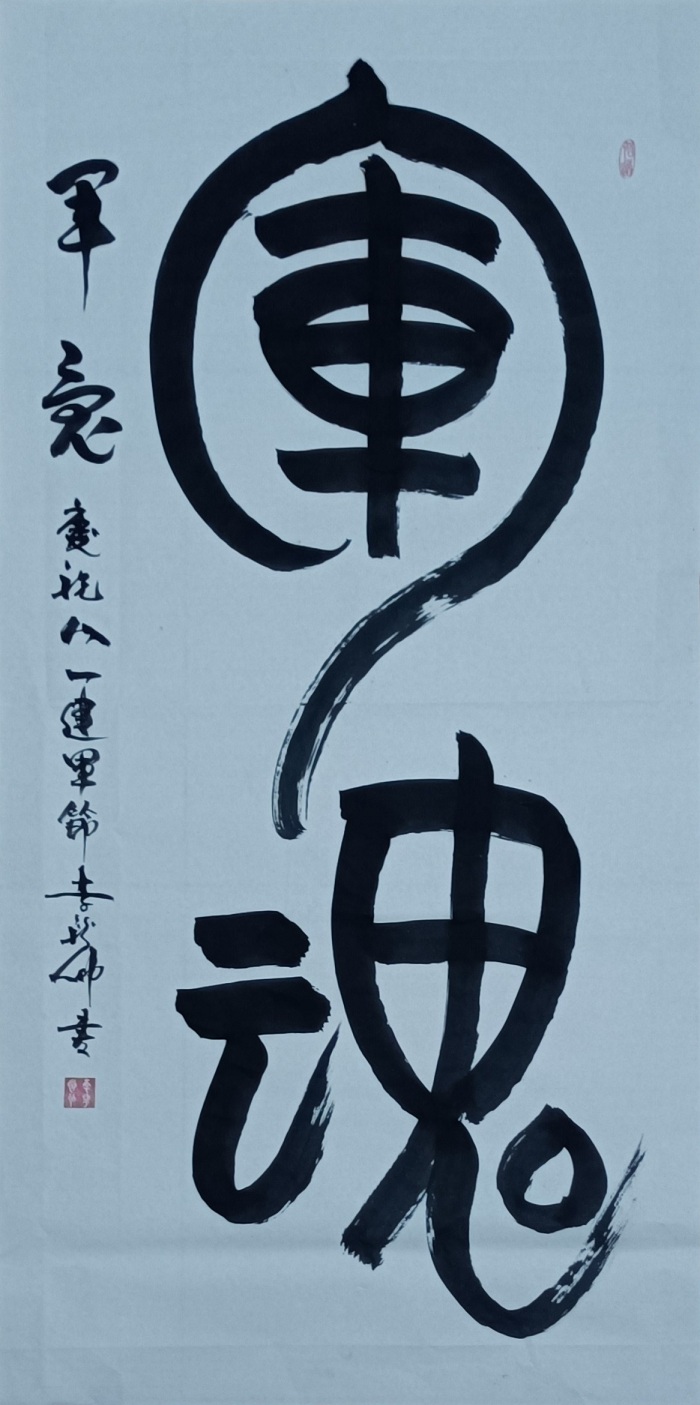 軍魂
军魂 慶祝八一建軍節 李龍佛書